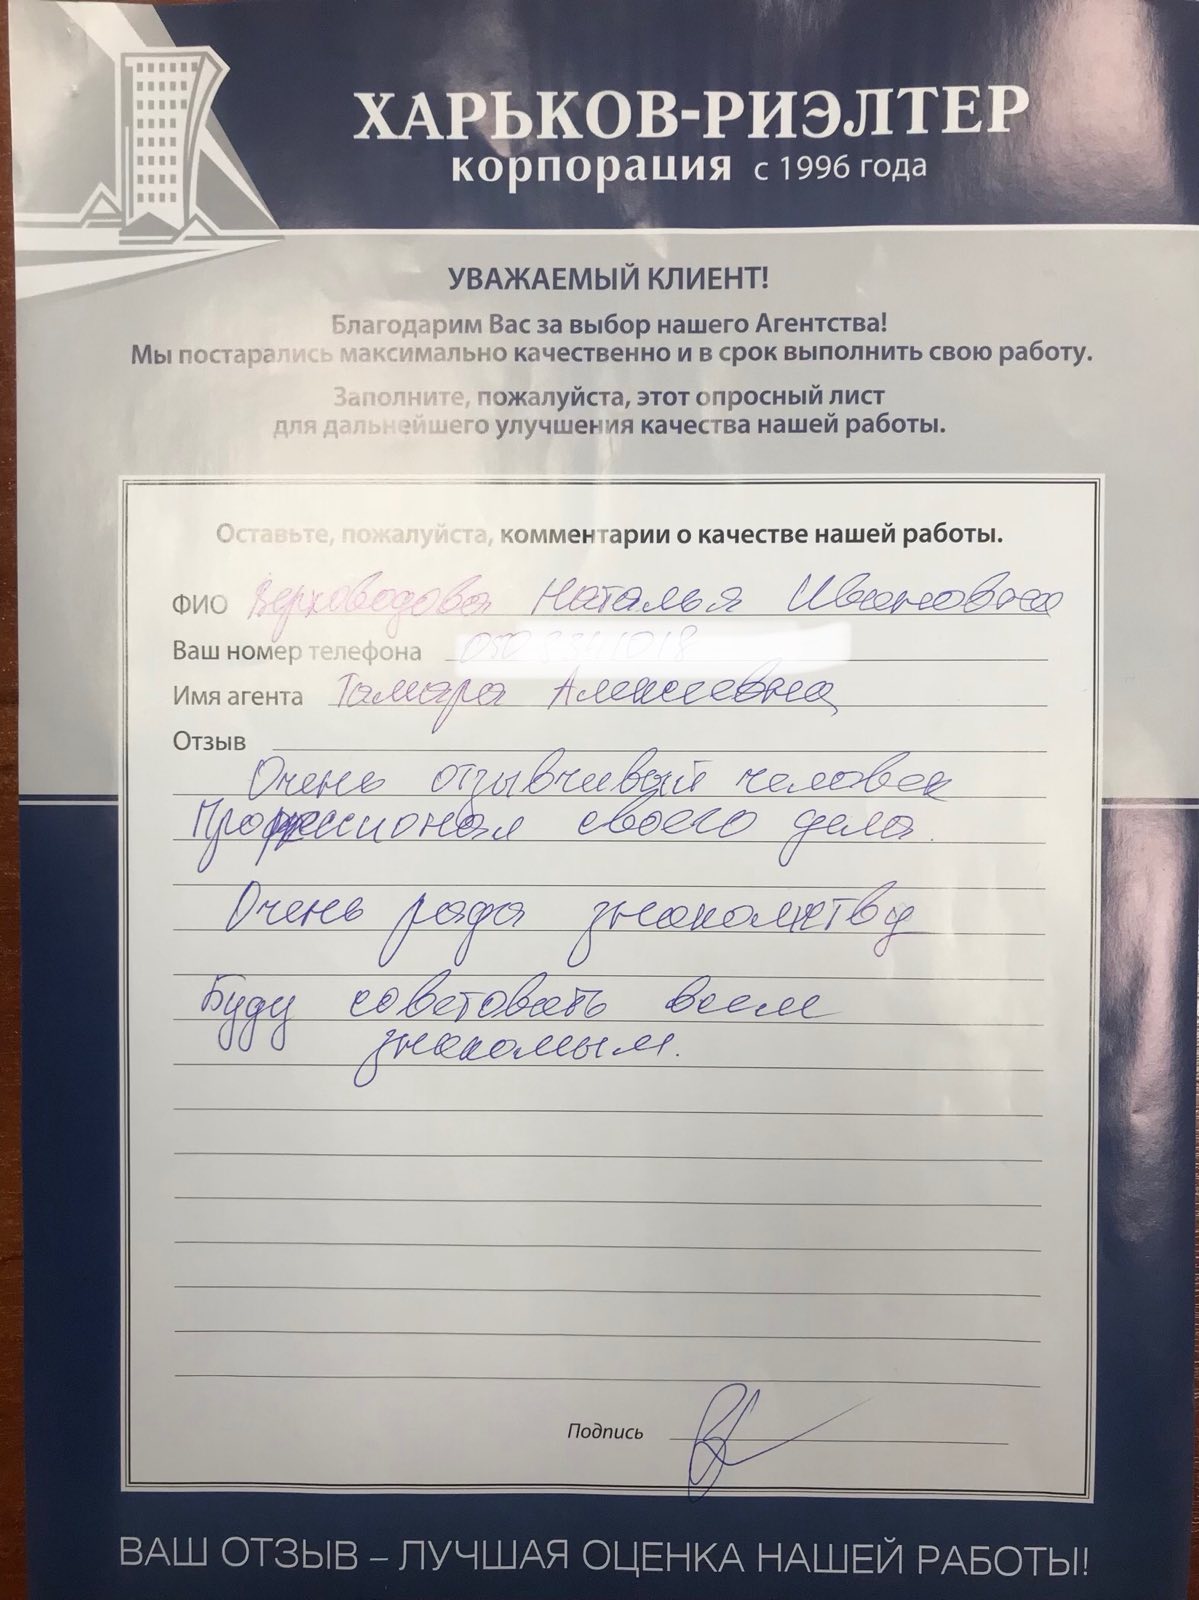 ХАРЬКОВ-РИЭЛТЕР
корпорация с 1996 года
УВАЖАЕМЫЙ КЛИЕНТ!
Благодарим Вас за выбор нашего Агентства!
Мы постарались максимально качественно и в срок выполнить свою работу.
Заполните, пожалуйста, этот опросный лист
для дальнейшего улучшения качества нашей работы.
Оставьте, пожалуйста, комментарии о качестве нашей работы.
ФИО Верховодова Наталья Ивановна
Ваш номер телефона
Имя агента Тамара Алексеевна
Отзыв
Очень отзывчивый человек
Профессионал своего дела.
Очень рада знакомству
Буду советовать всем
знакомым.
Подпись
ВАШ ОТЗЫВ – ЛУЧШАЯ ОЦЕНКА НАШЕЙ РАБОТЫ!